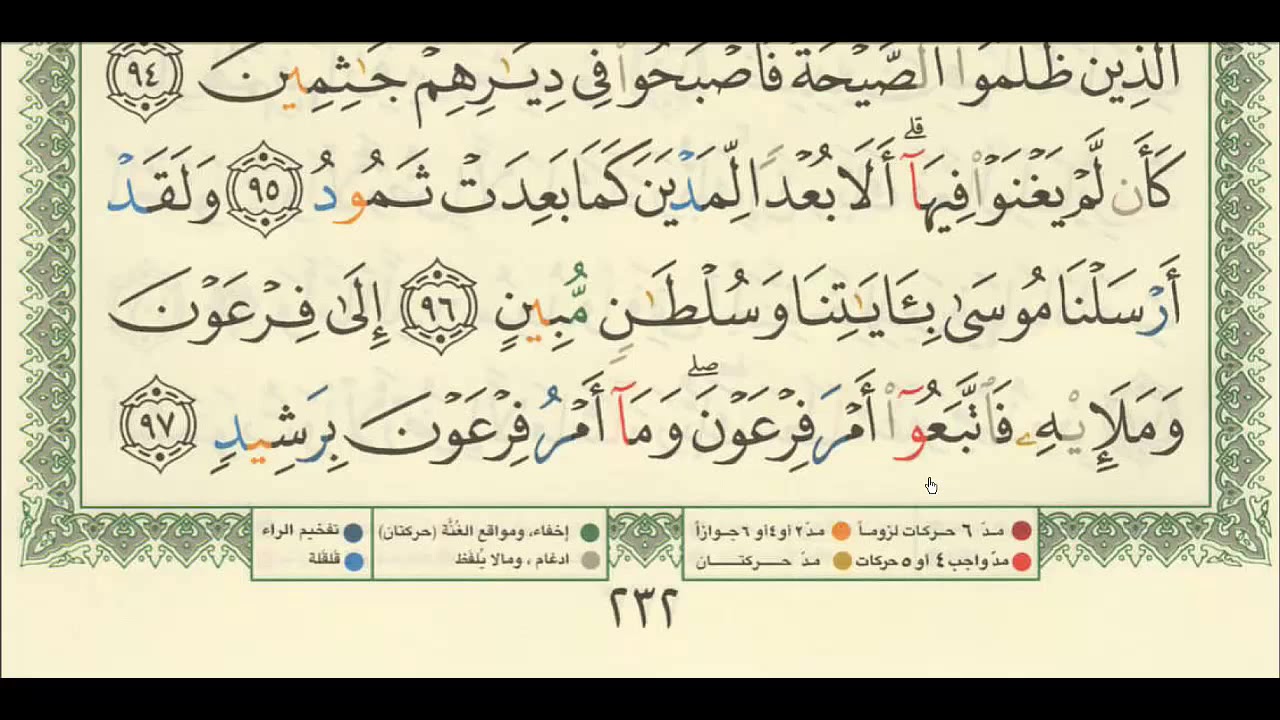 ٱلَّذِينَ ظَلَمُوا۟ ٱلصَّيْحَةُ فَأَصْبَحُوا۟ فِى دِيَـٰرِهِمْ جَـٰثِمِينَ ٩٤
كَأَن لَّمْ يَغْنَوْا۟ فِيهَآ ۗ أَلَا بُعْدًا لِّمَدْيَنَ كَمَا بَعِدَتْ ثَمُودُ ٩٥ وَلَقَدْ
أَرْسَلْنَا مُوسَىٰ بِـَٔايَـٰتِنَا وَسُلْطَـٰنٍ مُّبِينٍ ٩٦ إِلَىٰ فِرْعَوْنَ
وَمَلَإِي۟هِۦ فَٱتَّبَعُوٓا۟ أَمْرَ فِرْعَوْنَ ۖ وَمَآ أَمْرُ فِرْعَوْنَ بِرَشِيدٍ ٩٧
مدّ ٦ حركات لزوماً مدّ٢ أو٤أو ٦جوازاً
مدّ واجب٤ أو ٥ حركات مدّ حـركتـــان
إخفاء، ومواقع الغُنَّة (حركتان) تفخيم الراء
ادغام ، ومالا يُلفَظ قلقلة
٢٣٢